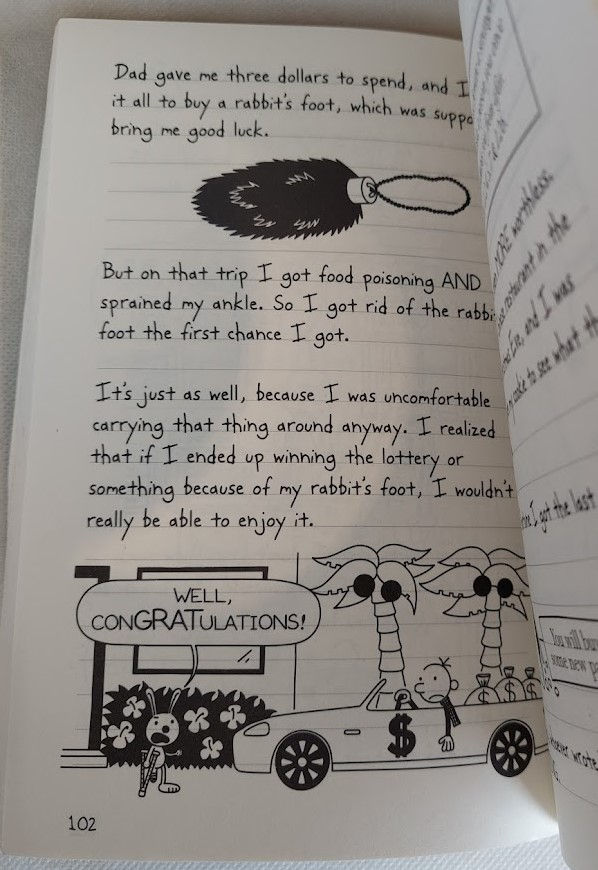 Dad gave me three dollars to spend, and I
it all to buy a rabbit's foot, which was suppo
bring me good luck.
But on that trip I got food poisoning AND
sprained my ankle. So I got rid of the rabbi
foot the first chance I got.
It's just as well, because I was uncomfortable
carrying that thing around anyway. I realized
that if I ended up winning the lottery or
something because of my rabbit's foot, I wouldn't
really be able to enjoy it.
WELL,
CONGRATULATIONS!
$
$ $ $
102
MORE worthless.
restaurant in the
Eve, and I was
cake to see what th
I got the last
You will bu
some new p
whoever wrote